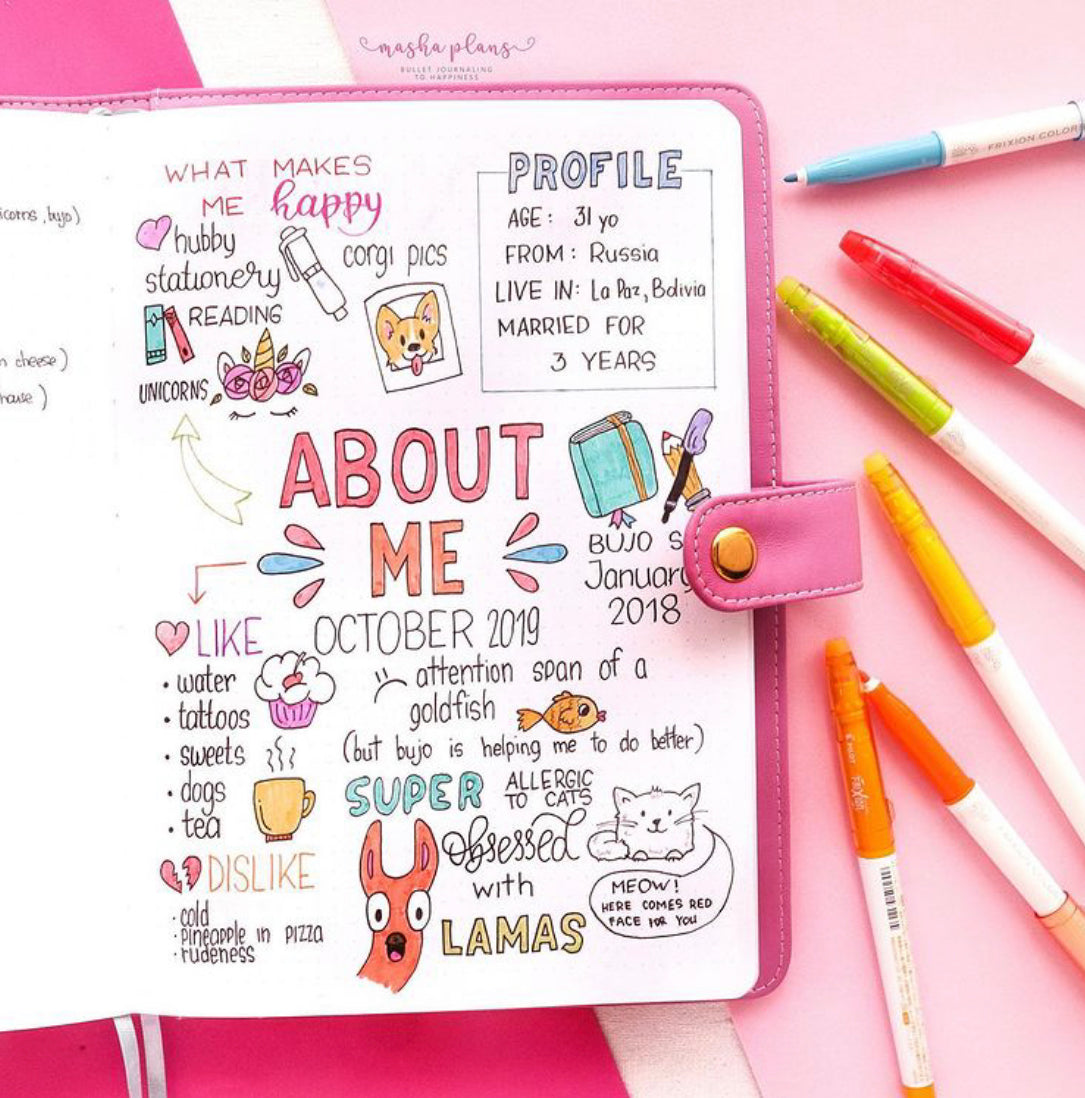 masha plans
BULLET JOURNALING
TO HAPPINESS
, bujo)
cheese)
WHAT MAKES
ME happy
hubby
stationery
corgi pics
READING
UNICORNS
PROFILE
AGE: 31 yo
FROM: Russia
LIVE IN: La Paz, Bolivia
MARRIED FOR
3 YEARS
ABOUT
ME
BUJO
January
2018
OCTOBER 2019
LIKE
• water
• tattoos
• sweets
• dogs
• tea
DISLIKE
• cold
• pineapple in pizza
• rudeness
attention span of a
goldfish
(but bujo is helping me to do better)
SUPER ALLERGIC
TO CATS
obsessed
with
LAMAS
MEOW!
HERE COMES RED
FACE FOR YOU
FRIXION COLORS
PILOT FriXion